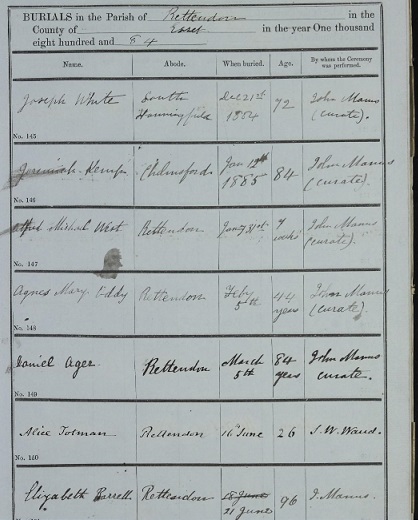 BURIALS in the Parish of Rettendon in the
County of Essex in the year One thousand
eight hundred and 84
Name. Abode. When buried. Age. By whom the Ceremony was performed.
Joseph White South Hanningfield Dec 21st 1884 72 John Manns (curate).
No. 145
Jeremiah Kemp Chelmsford Jan 12th 1885 84 John Manns (curate).
No. 146
Michael West Rettendon Jany 31st 7 weeks John Manns (curate).
No. 147
Agnes Mary Eddy Rettendon Feby 5th 44 years John Manns (curate).
No. 148
Daniel Ager Rettendon March 5th 84 years John Manns curate.
No. 149
Alice Tolman Rettendon 16 June 26 J. W. Waud.
No. 150
Elizabeth Rettendon 18 June 21 June 96 J. Manns.